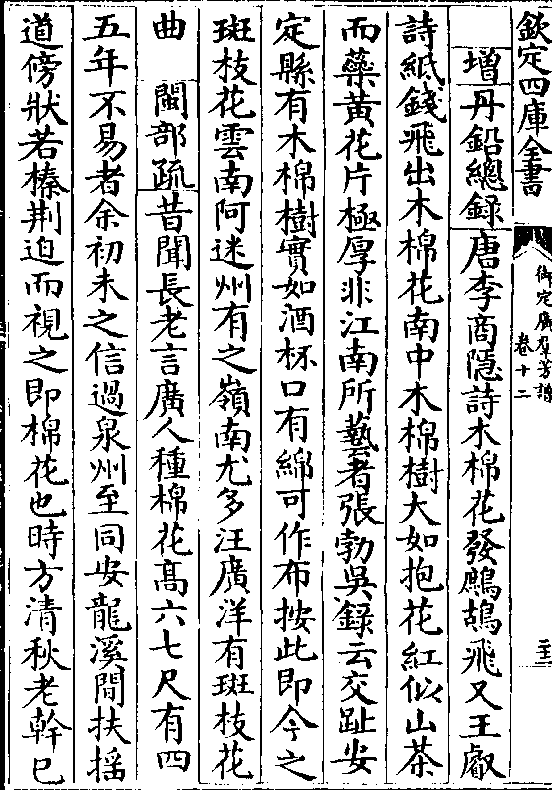 欽定四庫全書
御定廣羣芳譜
卷十二
增丹鉛總錄唐李商隱詩木棉花發鷓鴣飛又王叡
詩紙錢飛出木棉花南中木棉樹大如抱花紅似山茶
而蘂黃花片極厚非江南所藝者張勃吳錄云交趾安
定縣有木棉樹實如酒杯口有綿可作布按此即今之
斑枝花雲南阿迷州有之嶺南尤多汪廣洋有斑枝花
曲 閩部疏昔聞長老言廣人種棉花高六七尺有四
五年不易者余初未之信過泉州至同安龍溪間扶揺
道傍狀若榛荆迫而視之即棉花也時方清秋老幹已